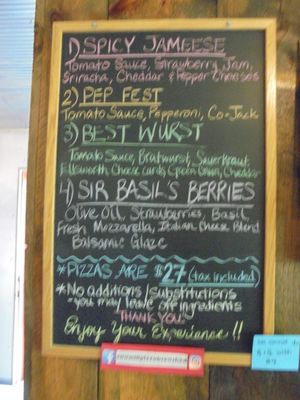 1) SPICY JAMEESE
Tomato Sauce, Strawberry Jam,
Sriracha, Cheddar & Pepper Cheeses
2) PEP FEST
Tomato Sauce, Pepperoni, Co-Jack
3) BEST WURST
Tomato Sauce, Bratwurst, Sauerkraut,
Ellsworth Cheese Curds, Green Onion, Cheddar
4) SIR BASIL'S BERRIES
Olive Oil, Strawberries, Basil,
Fresh Mozzarella, Italian Cheese Blend
Balsamic Glaze
*PIZZAS ARE $27 (tax included)
*No additions/substitutions
*you may leave off ingredients
THANK YOU!
Enjoy Your Experience!!